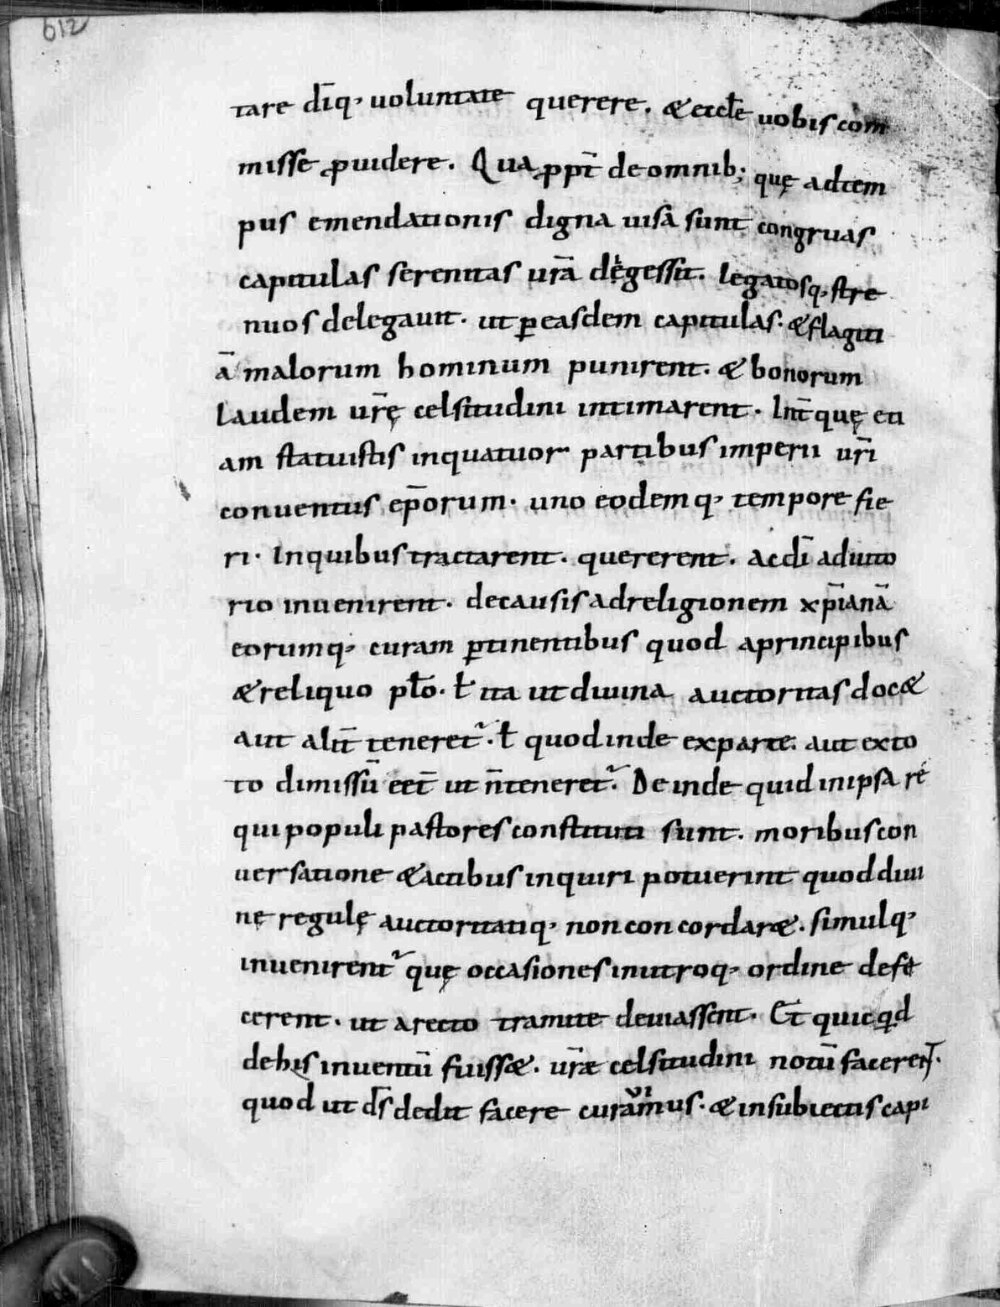 612
tare dīq, uoluntate querere, & eccłe uobis com
misse ꝓuidere. Qua ꝓpṫ de omnib; quę ad tem
pus emendationis digna uisa sunt congruas
capitulas serenitas urā degessit. legatosq, stre
nuos delegauit. ut ꝑ easdem capitulas. & flagiti
ā malorum hominum punirent. & bonorum
laudem urę̄ celsitudini intimarent. Int̄ quę eti
am statuistis in quatuor partibus imperii urī
conuentus ep̄orum. uno eodemq, tempore fie
ri. In quibus tractarent. quererent. Ac dī adiuto
rio inuenirent. de causis ad religionem xp̄ianā
eorumq, curam ꝑtinentibus quod a principibus
& reliquo pło. ł ita ut diuina auctoritas doc&
aut alit̄ teneret᷑. ł quod inde ex parte. aut ex to
to dimissū eēt ut n̄ teneret᷑. Deinde quid in ipsa re
qui populi pastores constituti sunt. moribus con
uersatione & actibus inquiri potuerint quod diui
nę regulę auctoritatiq, non concordar&. simulq,
inuenirent᷑ quę occasiones in utroq, ordine defe
cerent. ut a recto tramite deuiassent. Et quicqd
de his inuentū fuiss&. urǣ celsitudini notū facere
quod ut d̄s dedit facere curauimus. & in subiectis capi